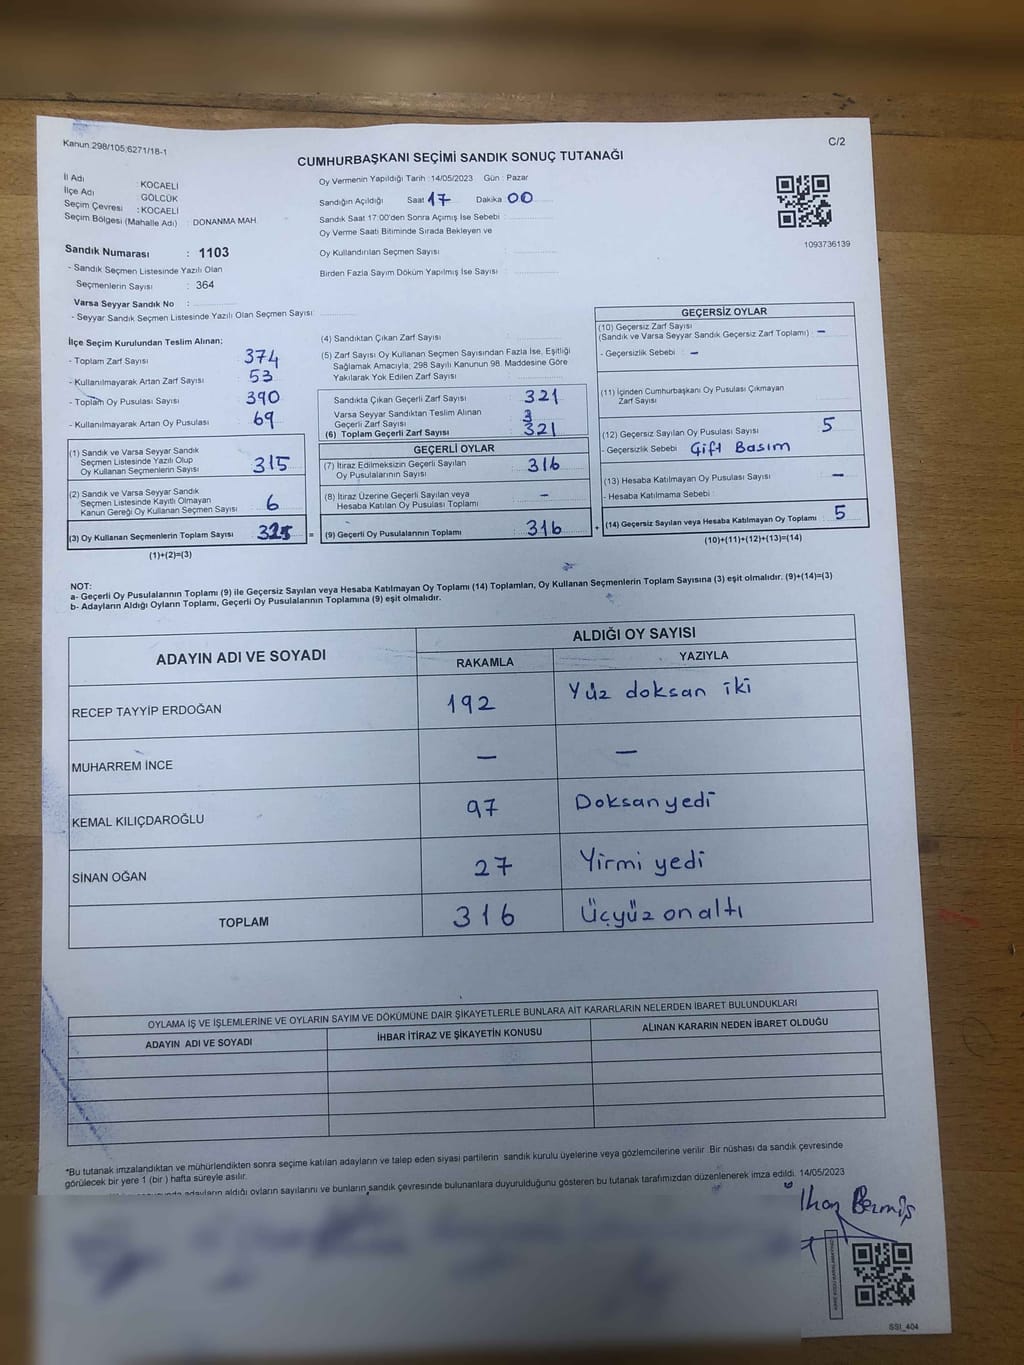 Kanun.298/105,6271/18-1
C/2
CUMHURBAŞKANI SEÇİMİ SANDIK SONUÇ TUTANAĞI
İl Adı : KOCAELİ
İlçe Adı : GÖLCÜK
Seçim Çevresi : KOCAELİ
Seçim Bölgesi (Mahalle Adı) : DONANMA MAH
Oy Vermenin Yapıldığı Tarih : 14/05/2023 Gün : Pazar
Sandığın Açıldığı Saat 17 Dakika 00
Sandık Saat 17:00'den Sonra Açımış İse Sebebi :
Oy Verme Saati Bitiminde Sırada Bekleyen ve
Oy Kullandırılan Seçmen Sayısı :
Birden Fazla Sayım Döküm Yapılmış İse Sayısı :
1093736139
Sandık Numarası : 1103
- Sandık Seçmen Listesinde Yazılı Olan
Seçmenlerin Sayısı : 364
Varsa Seyyar Sandık No :
- Seyyar Sandık Seçmen Listesinde Yazılı Olan Seçmen Sayısı:
İlçe Seçim Kurulundan Teslim Alınan;
- Toplam Zarf Sayısı 374
- Kullanılmayarak Artan Zarf Sayısı 53
- Toplam Oy Pusulası Sayısı 390
- Kullanılmayarak Artan Oy Pusulası 69
(1) Sandık ve Varsa Seyyar Sandık
Seçmen Listesinde Yazılı Olup
Oy Kullanan Seçmenlerin Sayısı 315
(2) Sandık ve Varsa Seyyar Sandık
Seçmen Listesinde Kayıtlı Olmayan
Kanun Gereği Oy Kullanan Seçmen Sayısı 6
(3) Oy Kullanan Seçmenlerin Toplam Sayısı
(1)+(2)=(3)
(4) Sandıktan Çıkan Zarf Sayısı :
(5) Zarf Sayısı Oy Kullanan Seçmen Sayısından Fazla İse, Eşitliği
Sağlamak Amacıyla; 298 Sayılı Kanunun 98. Maddesine Göre
Yakılarak Yok Edilen Zarf Sayısı :
Sandıkta Çıkan Geçerli Zarf Sayısı 321
Varsa Seyyar Sandıktan Teslim Alınan
Geçerli Zarf Sayısı
(6) Toplam Geçerli Zarf Sayısı 321
GEÇERLİ OYLAR
(7) İtiraz Edilmeksizin Geçerli Sayılan
Oy Pusulasının Sayısı 316
(8) İtiraz Üzerine Geçerli Sayılan veya
Hesaba Katılan Oy Pusulası Toplamı –
= (9) Geçerli Oy Pusulalarının Toplamı 316
GEÇERSİZ OYLAR
(10) Geçersiz Zarf Sayısı
(Sandık ve Varsa Seyyar Sandık Geçersiz Zarf Toplamı) : –
- Geçersizlik Sebebi : –
(11) İçinden Cumhurbaşkanı Oy Pusulası Çıkmayan
Zarf Sayısı
(12) Geçersiz Sayılan Oy Pusulası Sayısı 5
- Geçersizlik Sebebi Çift Basım
(13) Hesaba Katılmayan Oy Pusulası Sayısı –
- Hesaba Katılmama Sebebi :
+ (14) Geçersiz Sayılan veya Hesaba Katılmayan Oy Toplamı 5
(10)+(11)+(12)+(13)=(14)
NOT:
a- Geçerli Oy Pusulalarının Toplamı (9) ile Geçersiz Sayılan veya Hesaba Katılmayan Oy Toplamı (14) Toplamları, Oy Kullanan Seçmenlerin Toplam Sayısına (3) eşit olmalıdır. (9)+(14)=(3)
b- Adayların Aldığı Oyların Toplamı, Geçerli Oy Pusulalarının Toplamına (9) eşit olmalıdır.
ADAYIN ADI VE SOYADI
ALDIĞI OY SAYISI
RAKAMLA YAZIYLA
RECEP TAYYİP ERDOĞAN 192 Yüz doksan iki
MUHARREM İNCE – –
KEMAL KILIÇDAROĞLU 97 Doksanyedi
SİNAN OĞAN 27 Yirmi yedi
TOPLAM 316 Üçyüz onaltı
OYLAMA İŞ VE İŞLEMLERİNE VE OYLARIN SAYIM VE DÖKÜMÜNE DAİR ŞİKAYETLERLE BUNLARA AİT KARARLARIN NELERDEN İBARET BULUNDUKLARI
ADAYIN ADI VE SOYADI İHBAR İTİRAZ VE ŞİKAYETİN KONUSU ALINAN KARARIN NEDEN İBARET OLDUĞU
*Bu tutanak imzalandıktan ve mühürlendikten sonra seçime katılan adayların ve talep eden siyasi partilerin sandık kurulu üyelerine veya gözlemcilerine verilir. Bir nüshası da sandık çevresinde
görülecek bir yere 1 (bir) hafta süreyle asılır.
adayların aldığı oyların sayılarını ve bunların sandık çevresinde bulunanlara duyurulduğunu gösteren bu tutanak tarafımızdan düzenlenerek imza edildi. 14/05/2023
SSI_404